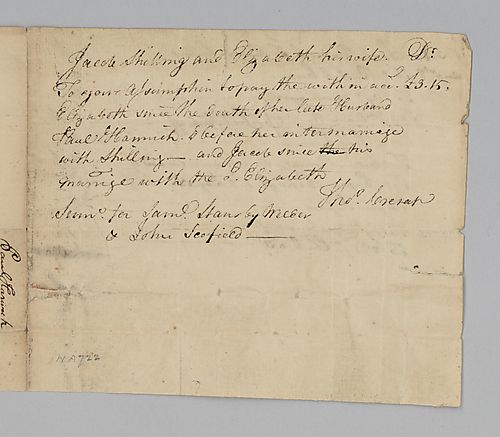 Jacob Shilling and Elizabeth his wife. Dr.
To your assumption to pay the within acct. £3.15.
Elizabeth since the death of her late Husband
Paul Hannich & before her intermarriage
with Shilling — and Jacob since the his
marrige with the sd. Elizabeth
Thos.
Sumns. for Saml. Stansby Weber
& John Scofield —
Paul Hannich
WA722